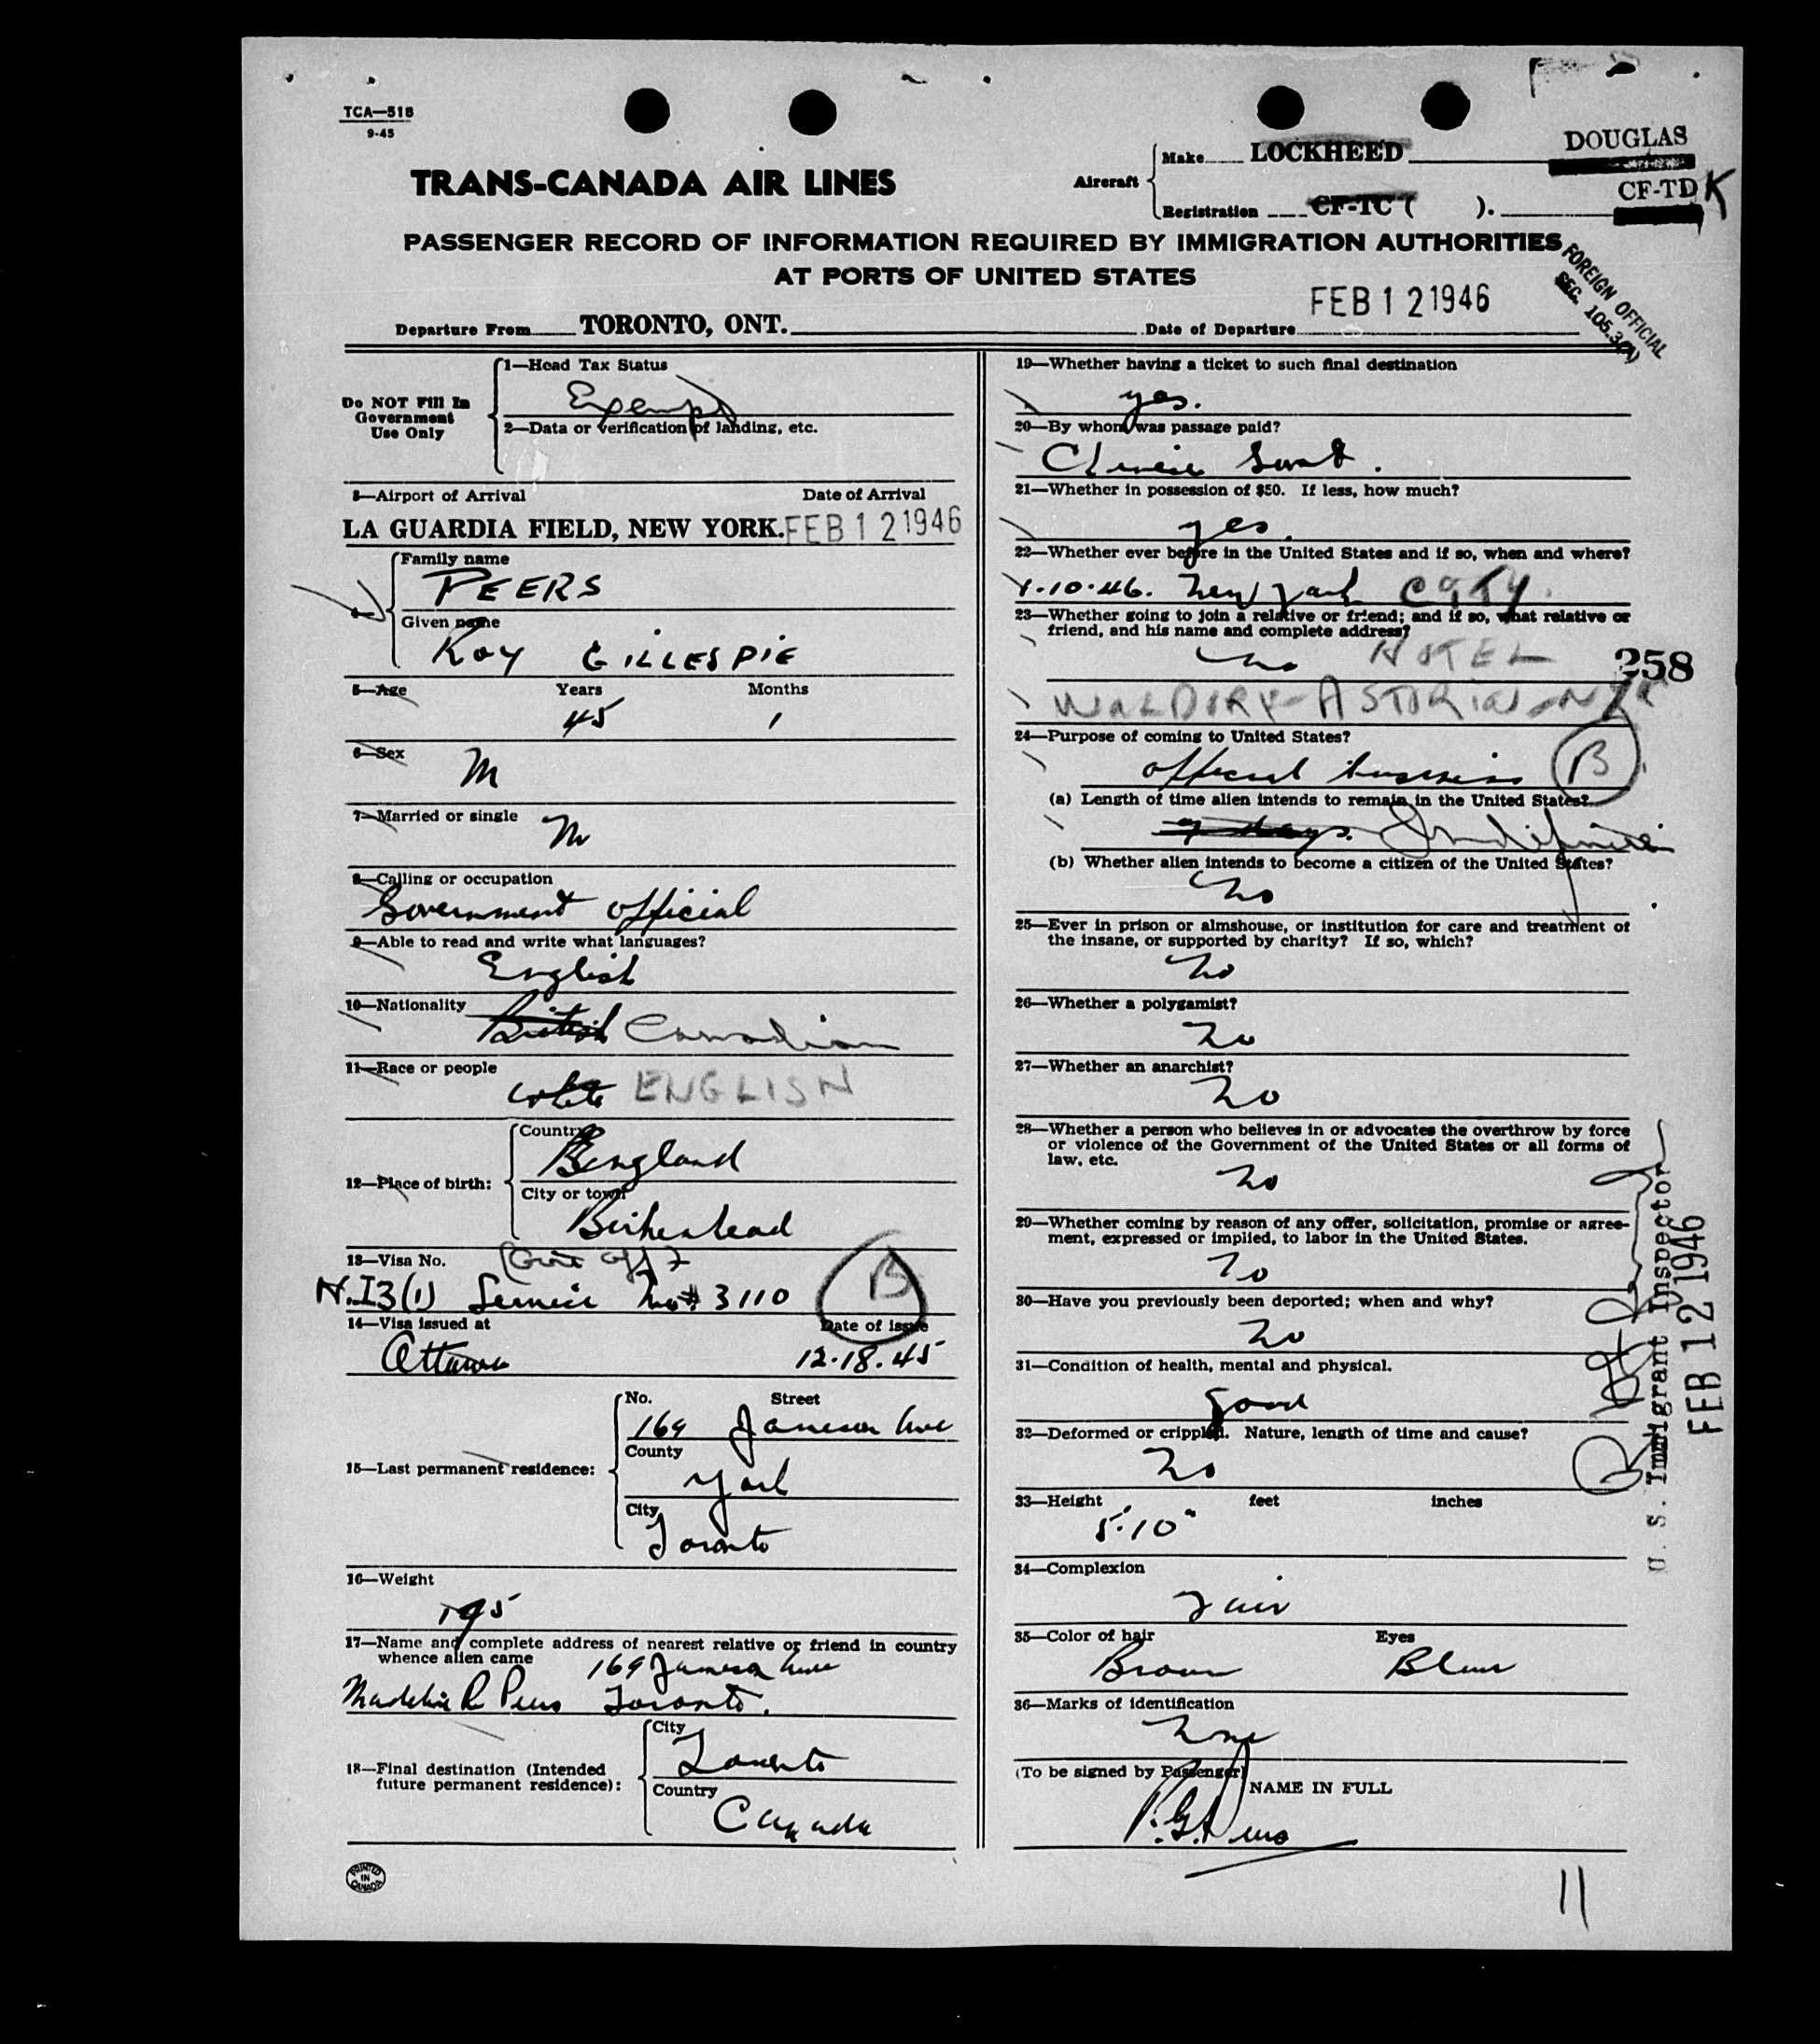 TCA—518
9-45
TRANS-CANADA AIR LINES
Aircraft
Make LOCKHEED
DOUGLAS
Registration CF-TC ( ).
CF-TD K
PASSENGER RECORD OF INFORMATION REQUIRED BY IMMIGRATION AUTHORITIES
AT PORTS OF UNITED STATES
FOREIGN OFFICIAL
SEC. 105.3(A)
Departure From TORONTO, ONT.
Date of Departure FEB 12 1946
Do NOT Fill In
Government
Use Only
1—Head Tax Status
Exempt
2—Data or verification of landing, etc.
3—Airport of Arrival Date of Arrival
LA GUARDIA FIELD, NEW YORK. FEB 12 1946
Family name
PEERS
Given name
Roy GILLESPIE
5—Age Years Months
45 1
6—Sex
M
7—Married or single
M
8—Calling or occupation
Government official
9—Able to read and write what languages?
English
10—Nationality
British Canadian
11—Race or people
white ENGLISH
12—Place of birth:
Country
England
City or town
Birkenhead
13—Visa No.
N.I3(1) No# 3110
B
14—Visa issued at Date of issue
Ottawa 12.18.45
15—Last permanent residence:
No. Street
169 Jameson Ave
County
York
City
Toronto
16—Weight
195
17—Name and complete address of nearest relative or friend in country
whence alien came
169 Jameson Ave
Madeline R Peers Toronto.
18—Final destination (Intended
future permanent residence):
City
Toronto
Country
Canada
PRINTED
IN
CANADA
19—Whether having a ticket to such final destination
yes.
20—By whom was passage paid?
21—Whether in possession of $50. If less, how much?
yes.
22—Whether ever before in the United States and if so, when and where?
1.10.46. New York CITY.
23—Whether going to join a relative or friend; and if so, what relative or
friend, and his name and complete address?
no HOTEL
258
WALDORF-ASTORIA - NYC
24—Purpose of coming to United States?
official business B
(a) Length of time alien intends to remain in the United States?
7 days. Indefinite
(b) Whether alien intends to become a citizen of the United States?
No
25—Ever in prison or almshouse, or institution for care and treatment of
the insane, or supported by charity? If so, which?
No
26—Whether a polygamist?
No
27—Whether an anarchist?
No
28—Whether a person who believes in or advocates the overthrow by force
or violence of the Government of the United States or all forms of
law, etc.
No
29—Whether coming by reason of any offer, solicitation, promise or agree-
ment, expressed or implied, to labor in the United States.
No
30—Have you previously been deported; when and why?
No
31—Condition of health, mental and physical.
Good
32—Deformed or crippled. Nature, length of time and cause?
No
33—Height feet inches
5'.10"
34—Complexion
Fair
35—Color of hair Eyes
Brown Blue
36—Marks of identification
None
(To be signed by Passenger)
NAME IN FULL
R.G. Peers
U. S. Immigrant Inspector
FEB 12 1946
11